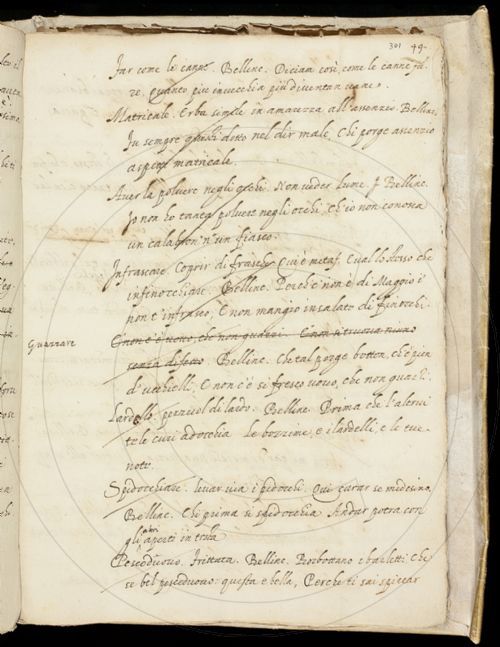 301 49
Far come le canne. Belline. Diciam così, come le canne fa-
te, quanto piu invecchia piu diventan vane.
Matricale. Erba simile in amarezza all'assenzio. Belline.
Fu sempre dotto nel dir male, Chi porge assenzio
aspetti matricale.
Aver la polvere negli occhi. Non veder lume. Belline.
Io non ho tanta polvere negli occhi, ch'io non conosca
un da n'un fiasco.
Infrascare. Coprir di frasche. Qui è metaf. E vallo stesso che
infinocchiare. Belline. Perch'e non è di Maggio i'
non t'infrasco, E non mangio insalata di finocchi.
Guazzare
E non è uovo, che non guazzi. E non si truova niuno
senza difetto. Belline. Che tal porge botton, ch'è pien
d'ucchielli, E non c'è sì fresco uovo, che non guazzi.
Lardello. pezzuol di lardo. Belline. Prima che
tele adocchia le bozzime, e i lardelli, e le tue
note.
Spidocchiare. levar via i pidocchi. Qui curar se medesimo.
Belline. Chi prima si spidocchia Andar potrà con
gli altri aperti in tresca
Pesceduovo. Frittata. Belline. Borbottano i barletti: Che
se bel pesceduovo: questa è bella, Perche ti sai spiccar